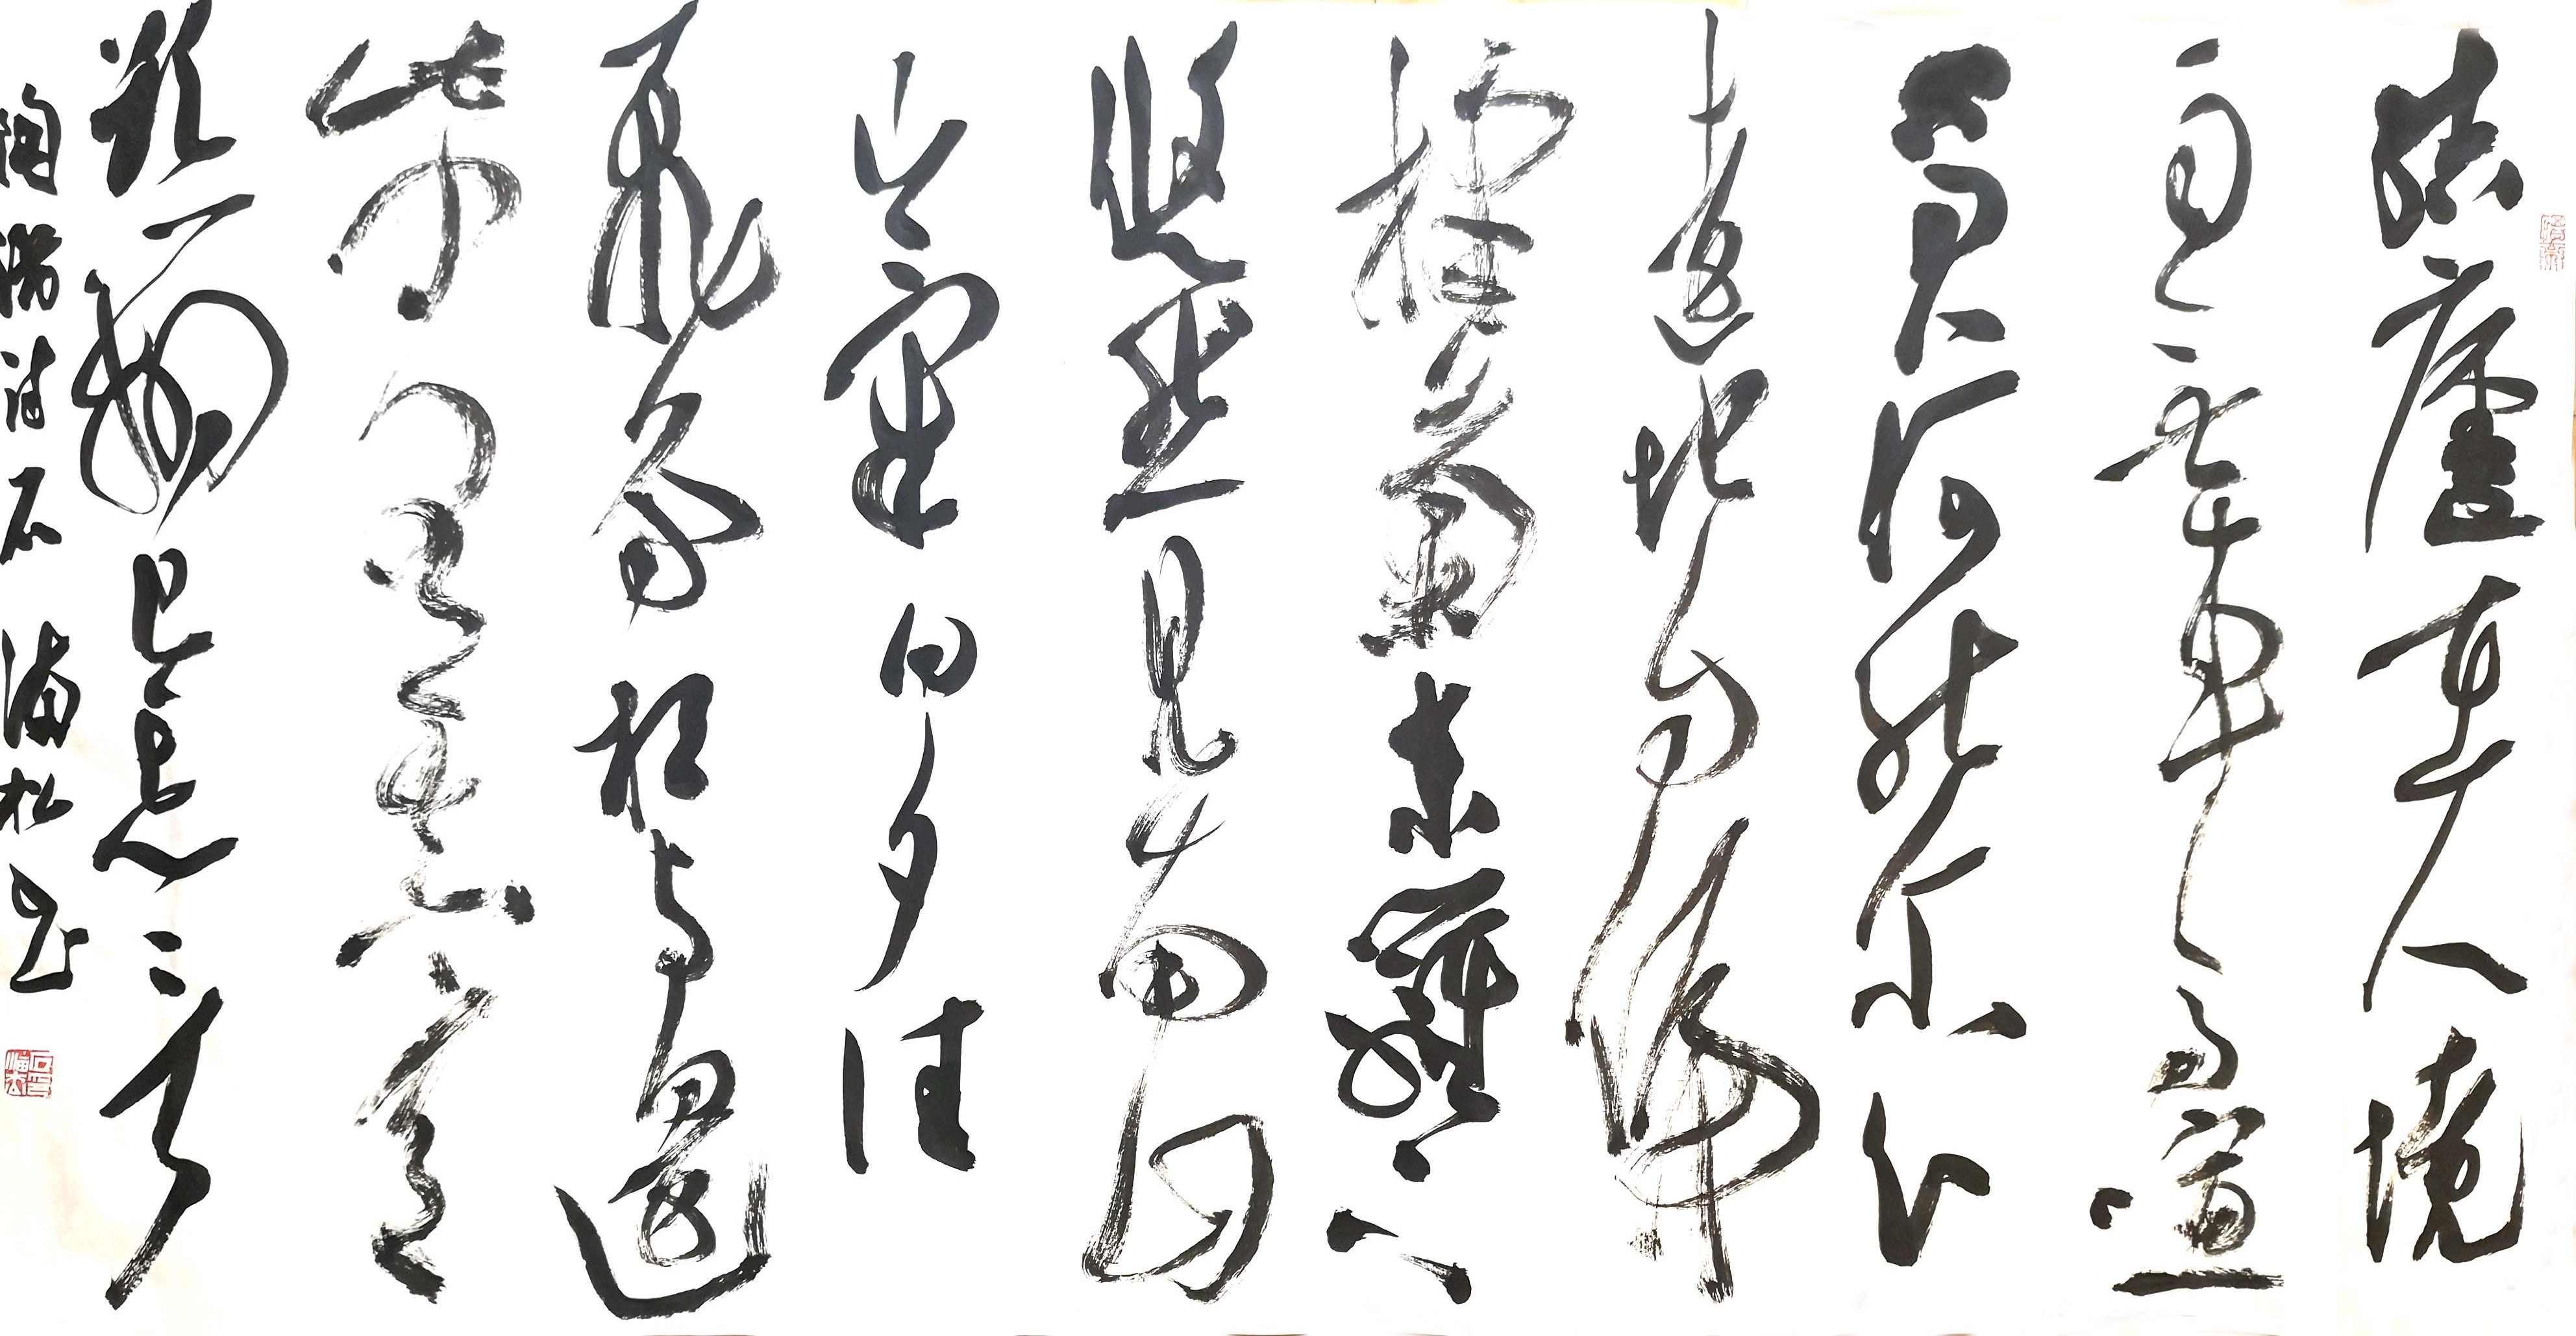 結廬在人境
而無車馬喧
問君何能爾心
遠地自偏
採菊東籬下
悠然見南山
山氣日夕佳
飛鳥相與還
此中有真意
欲辨已忘言
陶潛詩 石 松书